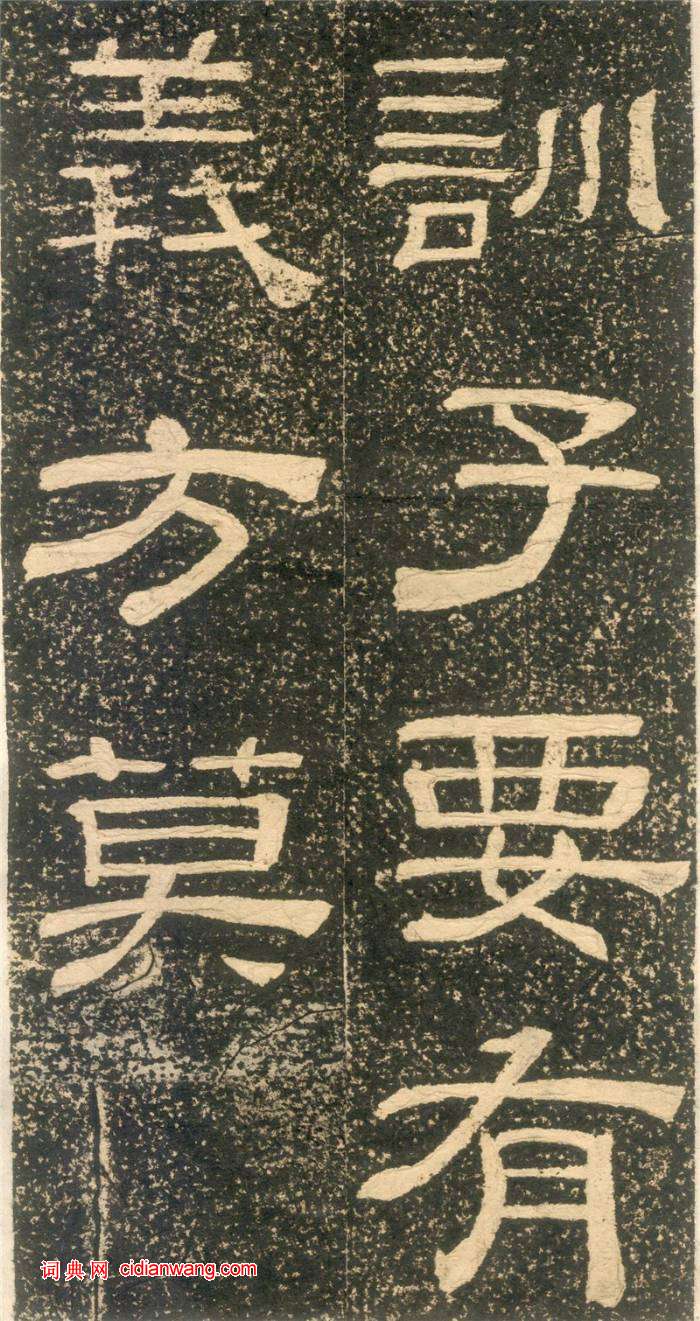 訓子要有
義方莫
词典网 cidianwang.com